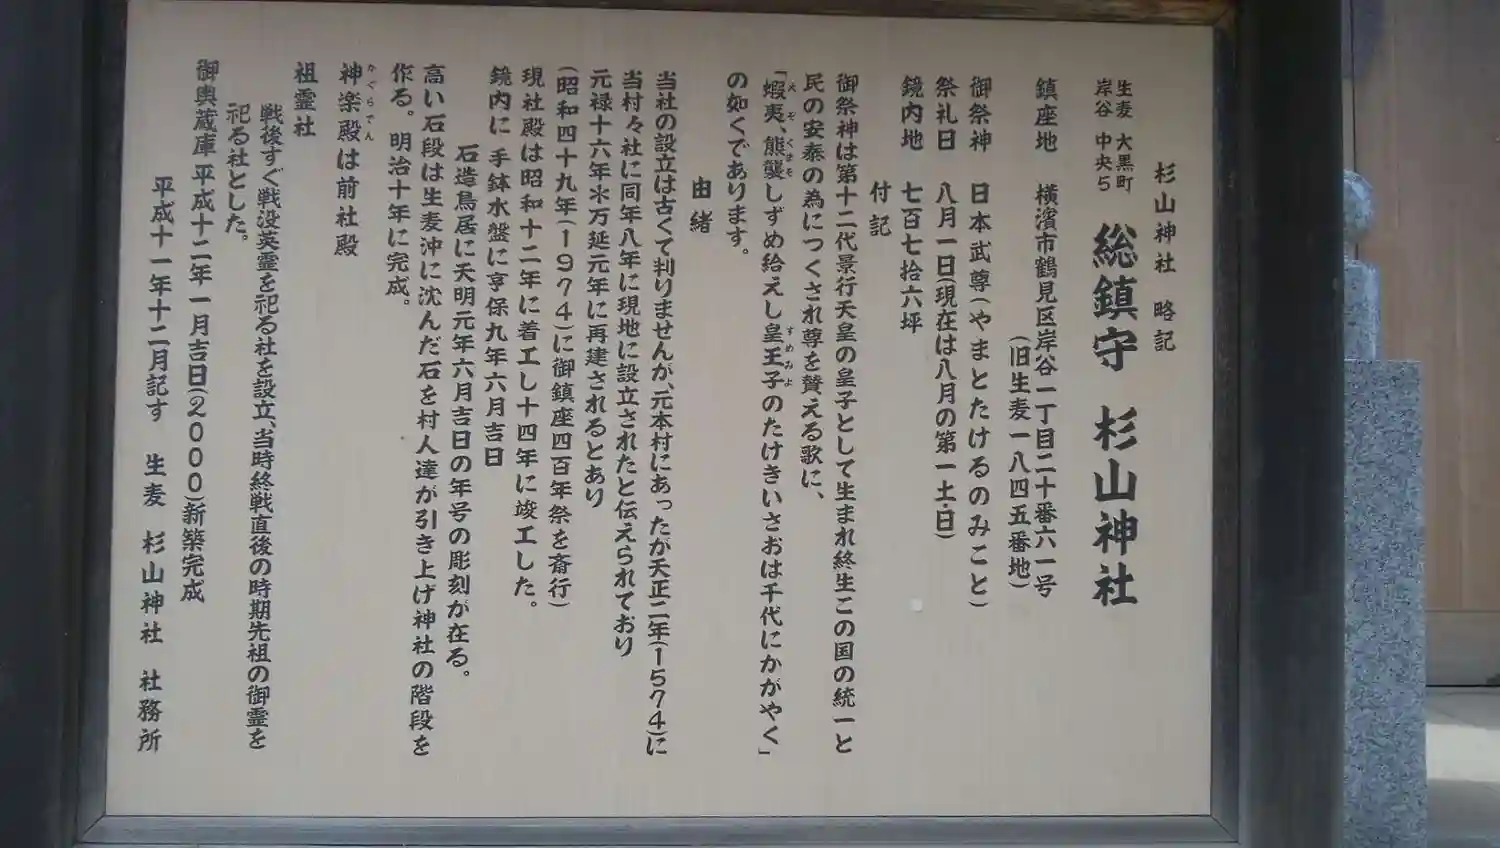 杉山神社　略記
生麦　大黒町
岸谷　中央5
総鎮守　杉山神社
鎮座地　横濱市鶴見区岸谷一丁目二十番六一号
(旧生麦一八四五番地)
御祭神　日本武尊(やまとたけるのみこと)
祭礼日　八月一日(現在は八月の第一土・日)
鏡内地　七百七拾六坪
付記
御祭神は第十二代景行天皇の皇子として生まれ終生この国の統一と
民の安泰の為につくされ尊を賛える歌に、
「蝦夷、熊襲しずめ給えし皇王子のたけきいさおは千代にかがやく」
えぞ　くまそ　すめみよ
の如くであります。
由緒
当社の設立は古くて判りませんが、元本村にあったが天正二年(1574)に
当村々社に同年八年に現地に設立されたと伝えられており
元禄十六年氺万延元年に再建されるとあり
(昭和四十九年(1974)に御鎮座四百年祭を斎行)
現社殿は昭和十二年に着工し十四年に竣工した。
鏡内に 手鉢水盤に亨保九年六月吉日
石造鳥居に天明元年六月吉日の年号の彫刻が在る。
高い石段は生麦沖に沈んだ石を村人達が引き上げ神社の階段を
作る。明治十年に完成。
神楽殿は前社殿
かぐらでん
祖霊社
戦後すぐ戦没英霊を祀る社を設立、当時終戦直後の時期先祖の御霊を
祀る社とした。
御輿蔵庫 平成十二年一月吉日(2000)新築完成
平成十一年十二月記す　生麦　杉山神社　社務所